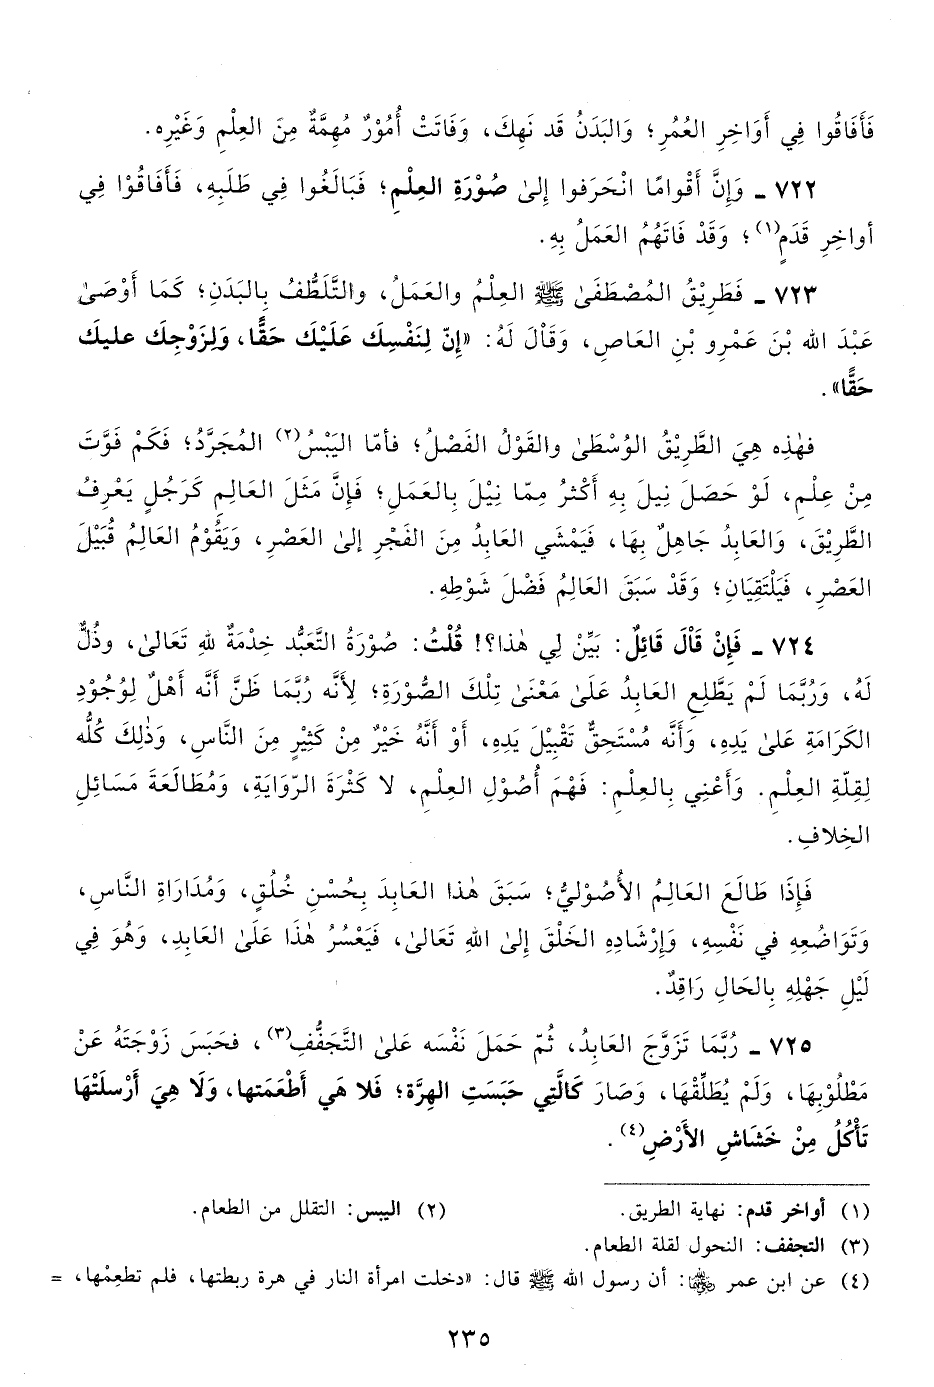 فَأَفَاقُوا فِي أَوَاخِرِ العُمُرِ؛ وَالبَدَنُ قَد نَهِكَ، وَفَاتَتْ أُمُوْرٌ مُهِمَّةٌ مِنَ العِلْمِ وَغَيْرِه.
٧٢٢ ـ وَإِنَّ أَقْوامًا انْحَرَفوا إِلىٰ صُوْرَةِ العِلْمِ؛ فَبَالَغُوا فِي طَلَبِهِ، فَأَفَاقُوْا فِي
أواخِرِ قَدَمٍ(١)؛ وَقَدْ فَاتَهُمُ العَمَلُ بِهِ.
٧٢٣ ـ فَطَرِيْقُ المُصْطَفَىٰ ﷺ العِلْمُ والعَمَلُ، والتَّلَطُّفُ بِالبَدَنِ؛ كَمَا أَوْصَىٰ
عَبْدَ الله بْنَ عَمْرِو بْنِ العَاصِ، وَقَاْلَ لَهُ: «إِنّ لِنَفْسِكَ عَلَيْكَ حَقًّا، وَلِزَوْجِكَ عليكَ
حَقًّا».
فهٰذِه هِيَ الطَّرِيْقُ الوُسْطَىٰ والقَوْلُ الفَصْلُ؛ فأمّا اليَبْسُ(٢) المُجَرَّدُ؛ فَكَمْ فَوَّتَ
مِنْ عِلْمٍ، لَوْ حَصَلَ نِيلَ بِهِ أَكْثرُ مِمّا نِيْلَ بِالعَمَلِ؛ فَإِنَّ مَثَلَ العَالِمِ كَرَجُلٍ يَعْرِفُ
الطَّرِيْقَ، وَالعَابِدُ جَاهِلٌ بِهَا، فَيَمْشي العَابِدُ مِنَ الفَجْرِ إلىٰ العَصْرِ، وَيَقُوْمُ العَالِمُ قُبَيْلَ
العَصْرِ، فَيَلْتَقِيَانِ؛ وَقَدْ سَبَقَ العَالِمُ فَضْلَ شَوْطِهِ.
٧٢٤ ـ فَإِنْ قَاْلَ قَائِلٌ: بَيِّنْ لِي هٰذا؟! قُلْتُ: صُوْرَةُ التَّعَبُّد خِدْمَةٌ للهِ تَعَالىٰ، وذُلٌّ
لَهُ، وَرُبَّمَا لَمْ يَطَّلِعِ العَابِدُ عَلَىٰ مَعْنَىٰ تِلْكَ الصُّوْرَةِ؛ لِأَنَّه رُبَّمَا ظَنَّ أَنَّه أَهْلٌ لِوُجُوْدِ
الكَرَامَةِ عَلىٰ يَدِهِ، وَأَنَّه مُسْتَحِقٌّ تَقْبِيْلَ يَدِهِ، أَوْ أَنَّهُ خَيْرٌ مِنْ كَثِيْرٍ مِنَ النَّاسِ، وَذٰلِكَ كُلُّه
لِقِلّةِ العِلْمِ. وَأَعْنِي بِالعِلْمِ: فَهْمَ أُصُوْلِ العِلْمِ، لا كَثْرَةَ الرّوَايَةِ، وَمُطَالَعَةَ مَسَائِلِ
الخِلافِ.
فَإِذَا طَالَعَ العَالِمُ الأُصُوْليُّ؛ سَبَقَ هٰذا العَابِدَ بِحُسْنِ خُلُقٍ، وَمُدَارَاةِ النَّاسِ،
وَتَوَاضُعِهِ في نَفْسِهِ، وَإِرْشَادِهِ الخَلْقَ إِلىٰ اللهِ تَعَالىٰ، فَيَعْسُرُ هٰذا عَلَىٰ العَابِدِ، وَهُوَ فِي
لَيْلِ جَهْلِهِ بِالحَالِ رَاقِدٌ.
٧٢٥ ـ رُبَّمَا تَزَوَّجَ العَابِدُ، ثُمّ حَمَلَ نَفْسَه عَلىٰ التَّجَفُّفِ(٣)، فحَبَسَ زَوْجَتَهُ عَنْ
مَطْلُوْبِهَا، وَلَمْ يُطَلِّقْهَا، وَصَارَ كَالَّتِي حَبَسَتِ الهِرَّةَ؛ فَلا هي أَطْعَمَتها، وَلَا هِيَ أَرْسلَتْهَا
تَأْكُلُ مِنْ خَشَاشِ الأَرْضِ(٤).
(١) أواخر قدم: نهاية الطريق. (٢) اليبس: التقلل من الطعام.
(٣) التجفف: النحول لقلة الطعام.
(٤) عن ابن عمر رضي الله عنهما: أن رسول الله ﷺ قال: «دخلت امرأة النار في هرة ربطتها، فلم تطعِمْها، =
٢٣٥